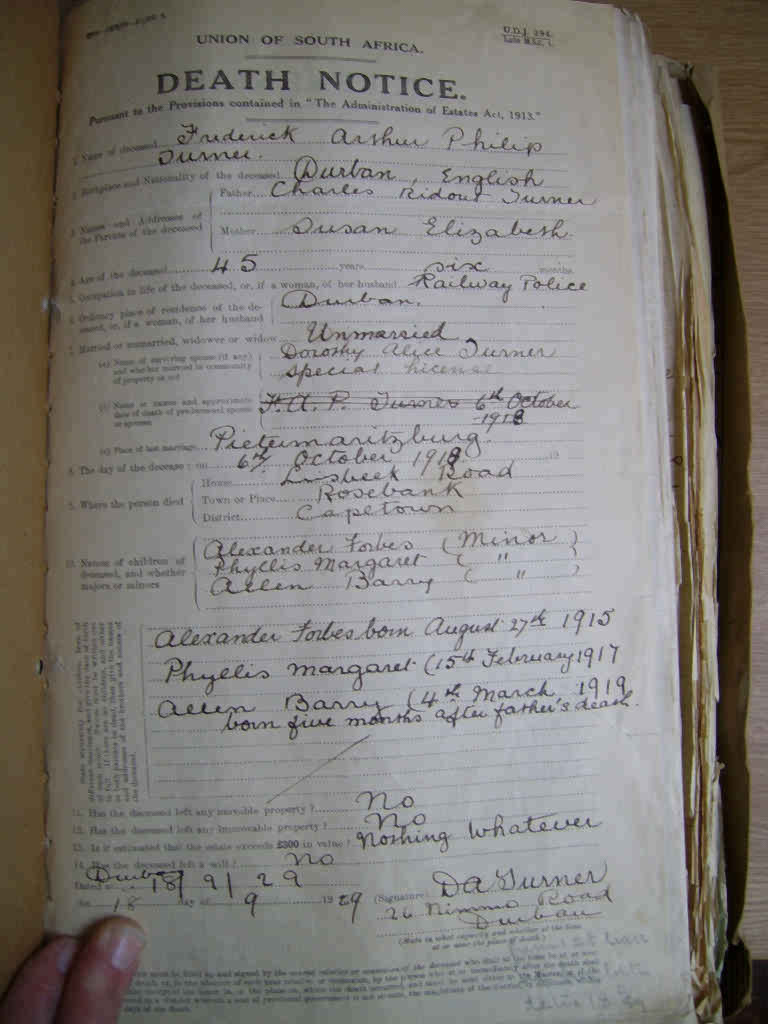 UNION OF SOUTH AFRICA.
U.D.J. 294.
DEATH NOTICE.
Pursuant to the Provisions contained in "The Administration of Estates Act, 1913."
1. Name of deceased Frederick Arthur Philip
Turner.
2. Birthplace and Nationality of the deceased Durban, English
3. Names and Addresses of the Parents of the deceased
Father Charles Ridout Turner
Mother Susan Elizabeth
4. Age of the deceased 45 years six months
5. Occupation in life of the deceased, or, if a woman, of her husband Railway Police
6. Ordinary place of residence of the de-
ceased, or, if a woman, of her husband Durban.
7. Married or unmarried, widower or widow Unmarried
(a) Name of surviving spouse (if any) Dorothy Alice Turner
and whether married in community
of property or not special license
(b) Name or names and approximate
date of death of predeceased spouse
or spouses F. A. P. Turner 6th October
1918
(c) Place of last marriage Pietermaritzburg.
8. The day of the decease: on 6th October 1918 19
9. Where the person died
House Liesbeek Road
Town or Place Rosebank
District Capetown
10. Names of children of
deceased, and whether
majors or minors
Alexander Forbes (Minor)
Phyllis Margaret ( " )
Allen Barry ( " )
Alexander Forbes born August 27th 1915
Phyllis Margaret (15th February 1917
Allen Barry (4th March 1919
born five months after father's death.
11. Has the deceased left any movable property? No
12. Has the deceased left any immovable property? No
13. Is it estimated that the estate exceeds £300 in value? Nothing whatever
14. Has the deceased left a will? No
Dated at Durban 18/9/29
the 18 day of 9 1929
(Signature) D A Turner
26 Nimmo Road
Durban
(State in what capacity and whether at the time
at or near the place of death)